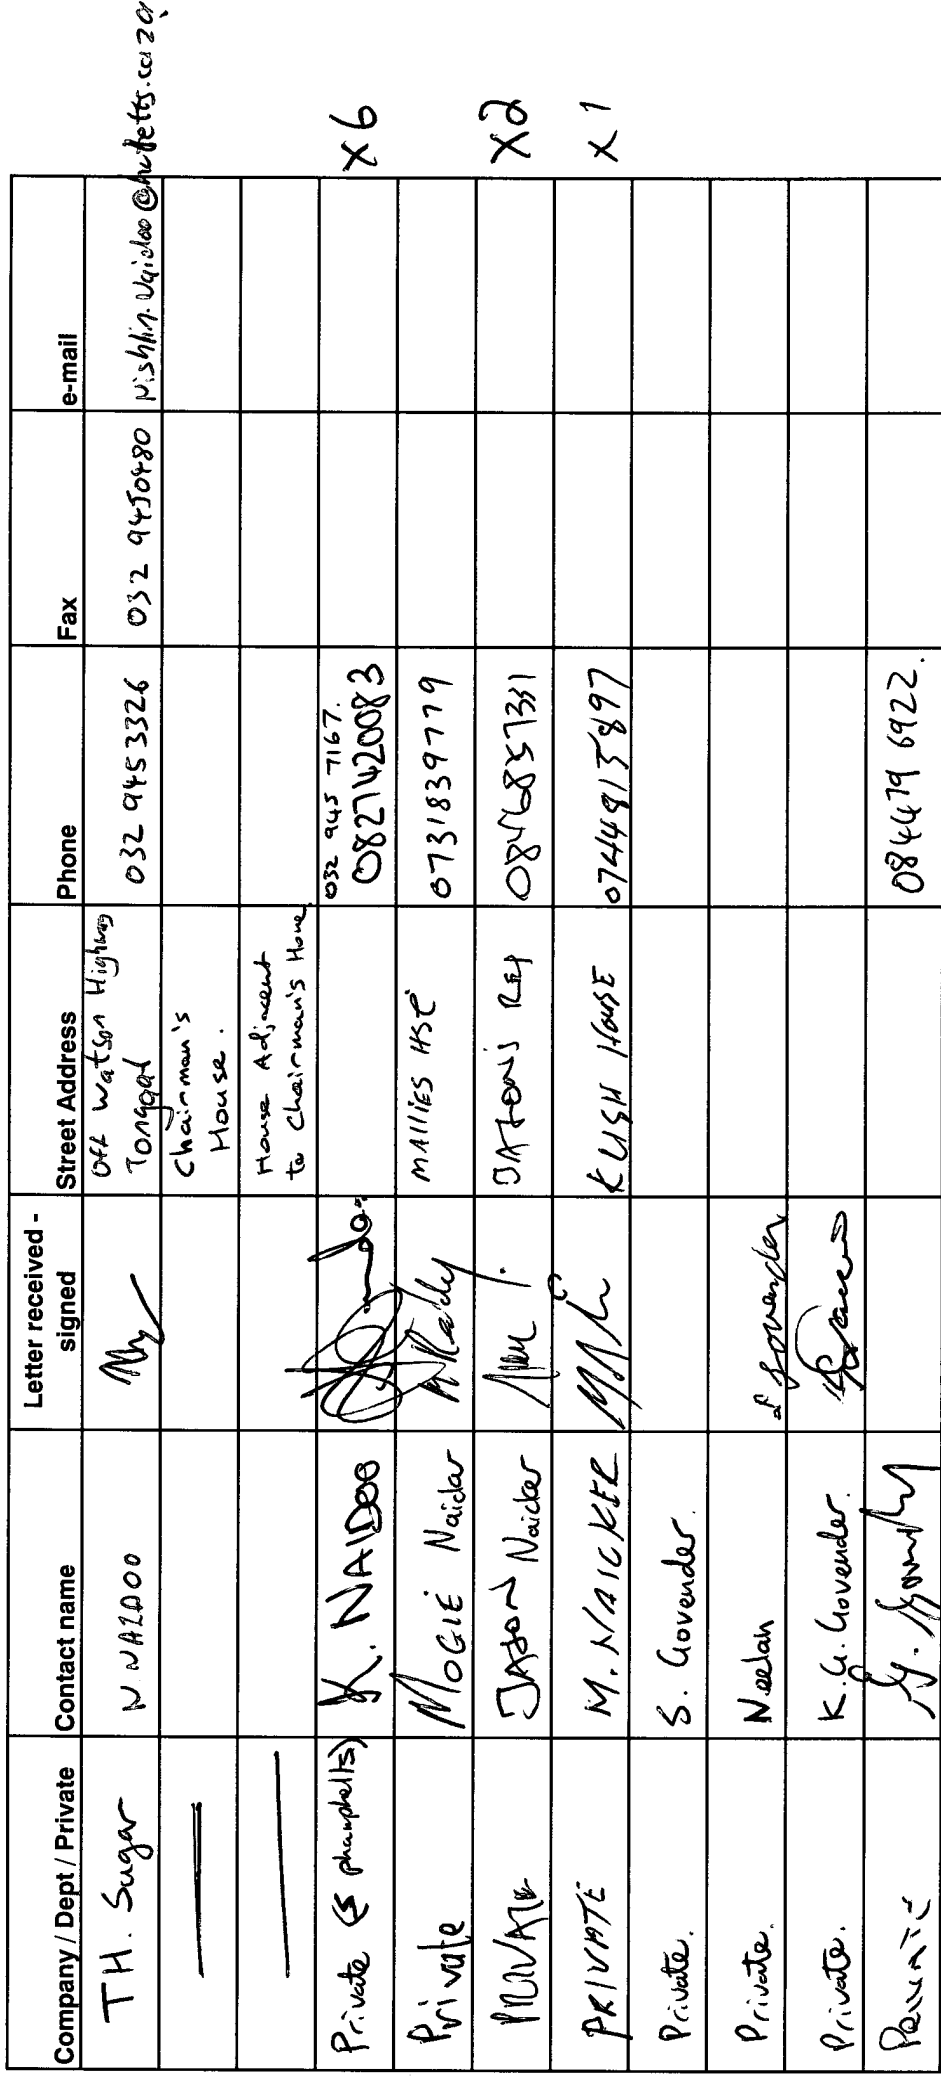 Company / Dept / Private Contact name Letter received - signed Street Address Phone Fax e-mail
TH. Sugar N. NAIDOO Off Watson Highway Tongaat 032 9453326 032 9450480
Chairman's House.
House Adjacent to Chairman's House
Private K. NAIDOO 032 945 7167. 0827420083 x6
Private MOGIE Naidar Reddy MALLIES HSE 0731839779
PRIVATE JASON Naicker x2
PRIVATE M. NAICKER KUSH HOUSE x1
Private. S. Govender.
Private. Neelan Govender
Private. K.G. Govender.
Private 084479 6922.